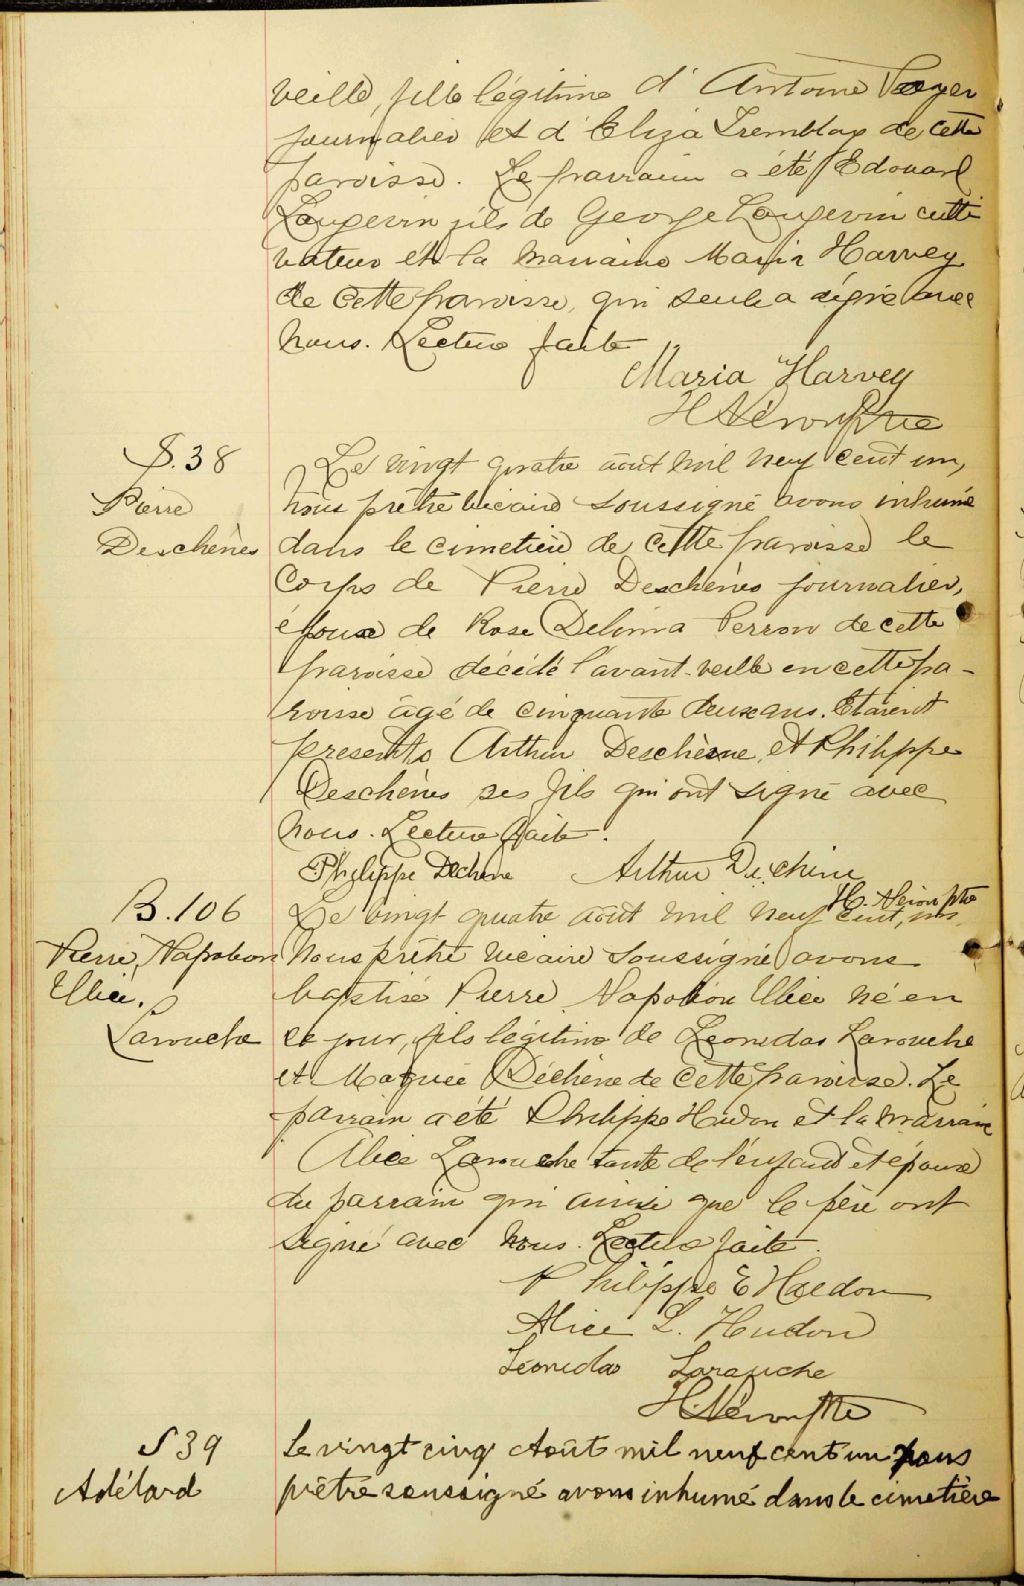 veille, fille légitime d'Antoine
journalier et d'Eliza Tremblay de cette
paroisse. Le parrain a été Edouard
Langevin fils de George Langevin culti
vateur et la marraine Maria Harvey
de cette paroisse, qui seule a signé avec
nous. Lecture faite
Maria Harvey
H Néron Ptre
S. 38
Pierre
Deschènes
Le vingt quatre août mil neuf cent un,
nous prêtre vicaire soussigné avons inhumé
dans le cimetière de cette paroisse le
corps de Pierre Deschènes journalier,
époux de Rose Delima Perron de cette
paroisse décédé l'avant-veille en cette pa-
roisse âgé de cinquante deux ans. Etaient
presents Arthur Deschène, et Philippe
Deschènes ses fils qui ont signé avec
nous. Lecture faite.
Philippe Dechene Arthur Dechene
H. Néron ptre
B. 106
Pierre, Napoléon
Ulric.
Larouche
Le vingt quatre août mil neuf cent, un,
nous prêtre vicaire soussigné avons
baptisé Pierre Napoléon Ulric né en
ce jour, fils légitime de Léonidas Larouche
et Déchène de cette paroisse. Le
parrain a été Philippe Hudon et la marraine
Alice Larouche tante de l'enfant et épouse
du parrain qui ainsi que le père ont
signé avec nous. Lecture faite.
Philippe E Hudon
Alice L. Hudon
Léonidas Larouche
H. Néron Ptre
S 39
Adélard
Le vingt cinq Août mil neuf cent un nous
prêtre soussigné avons inhumé dans le cimetière